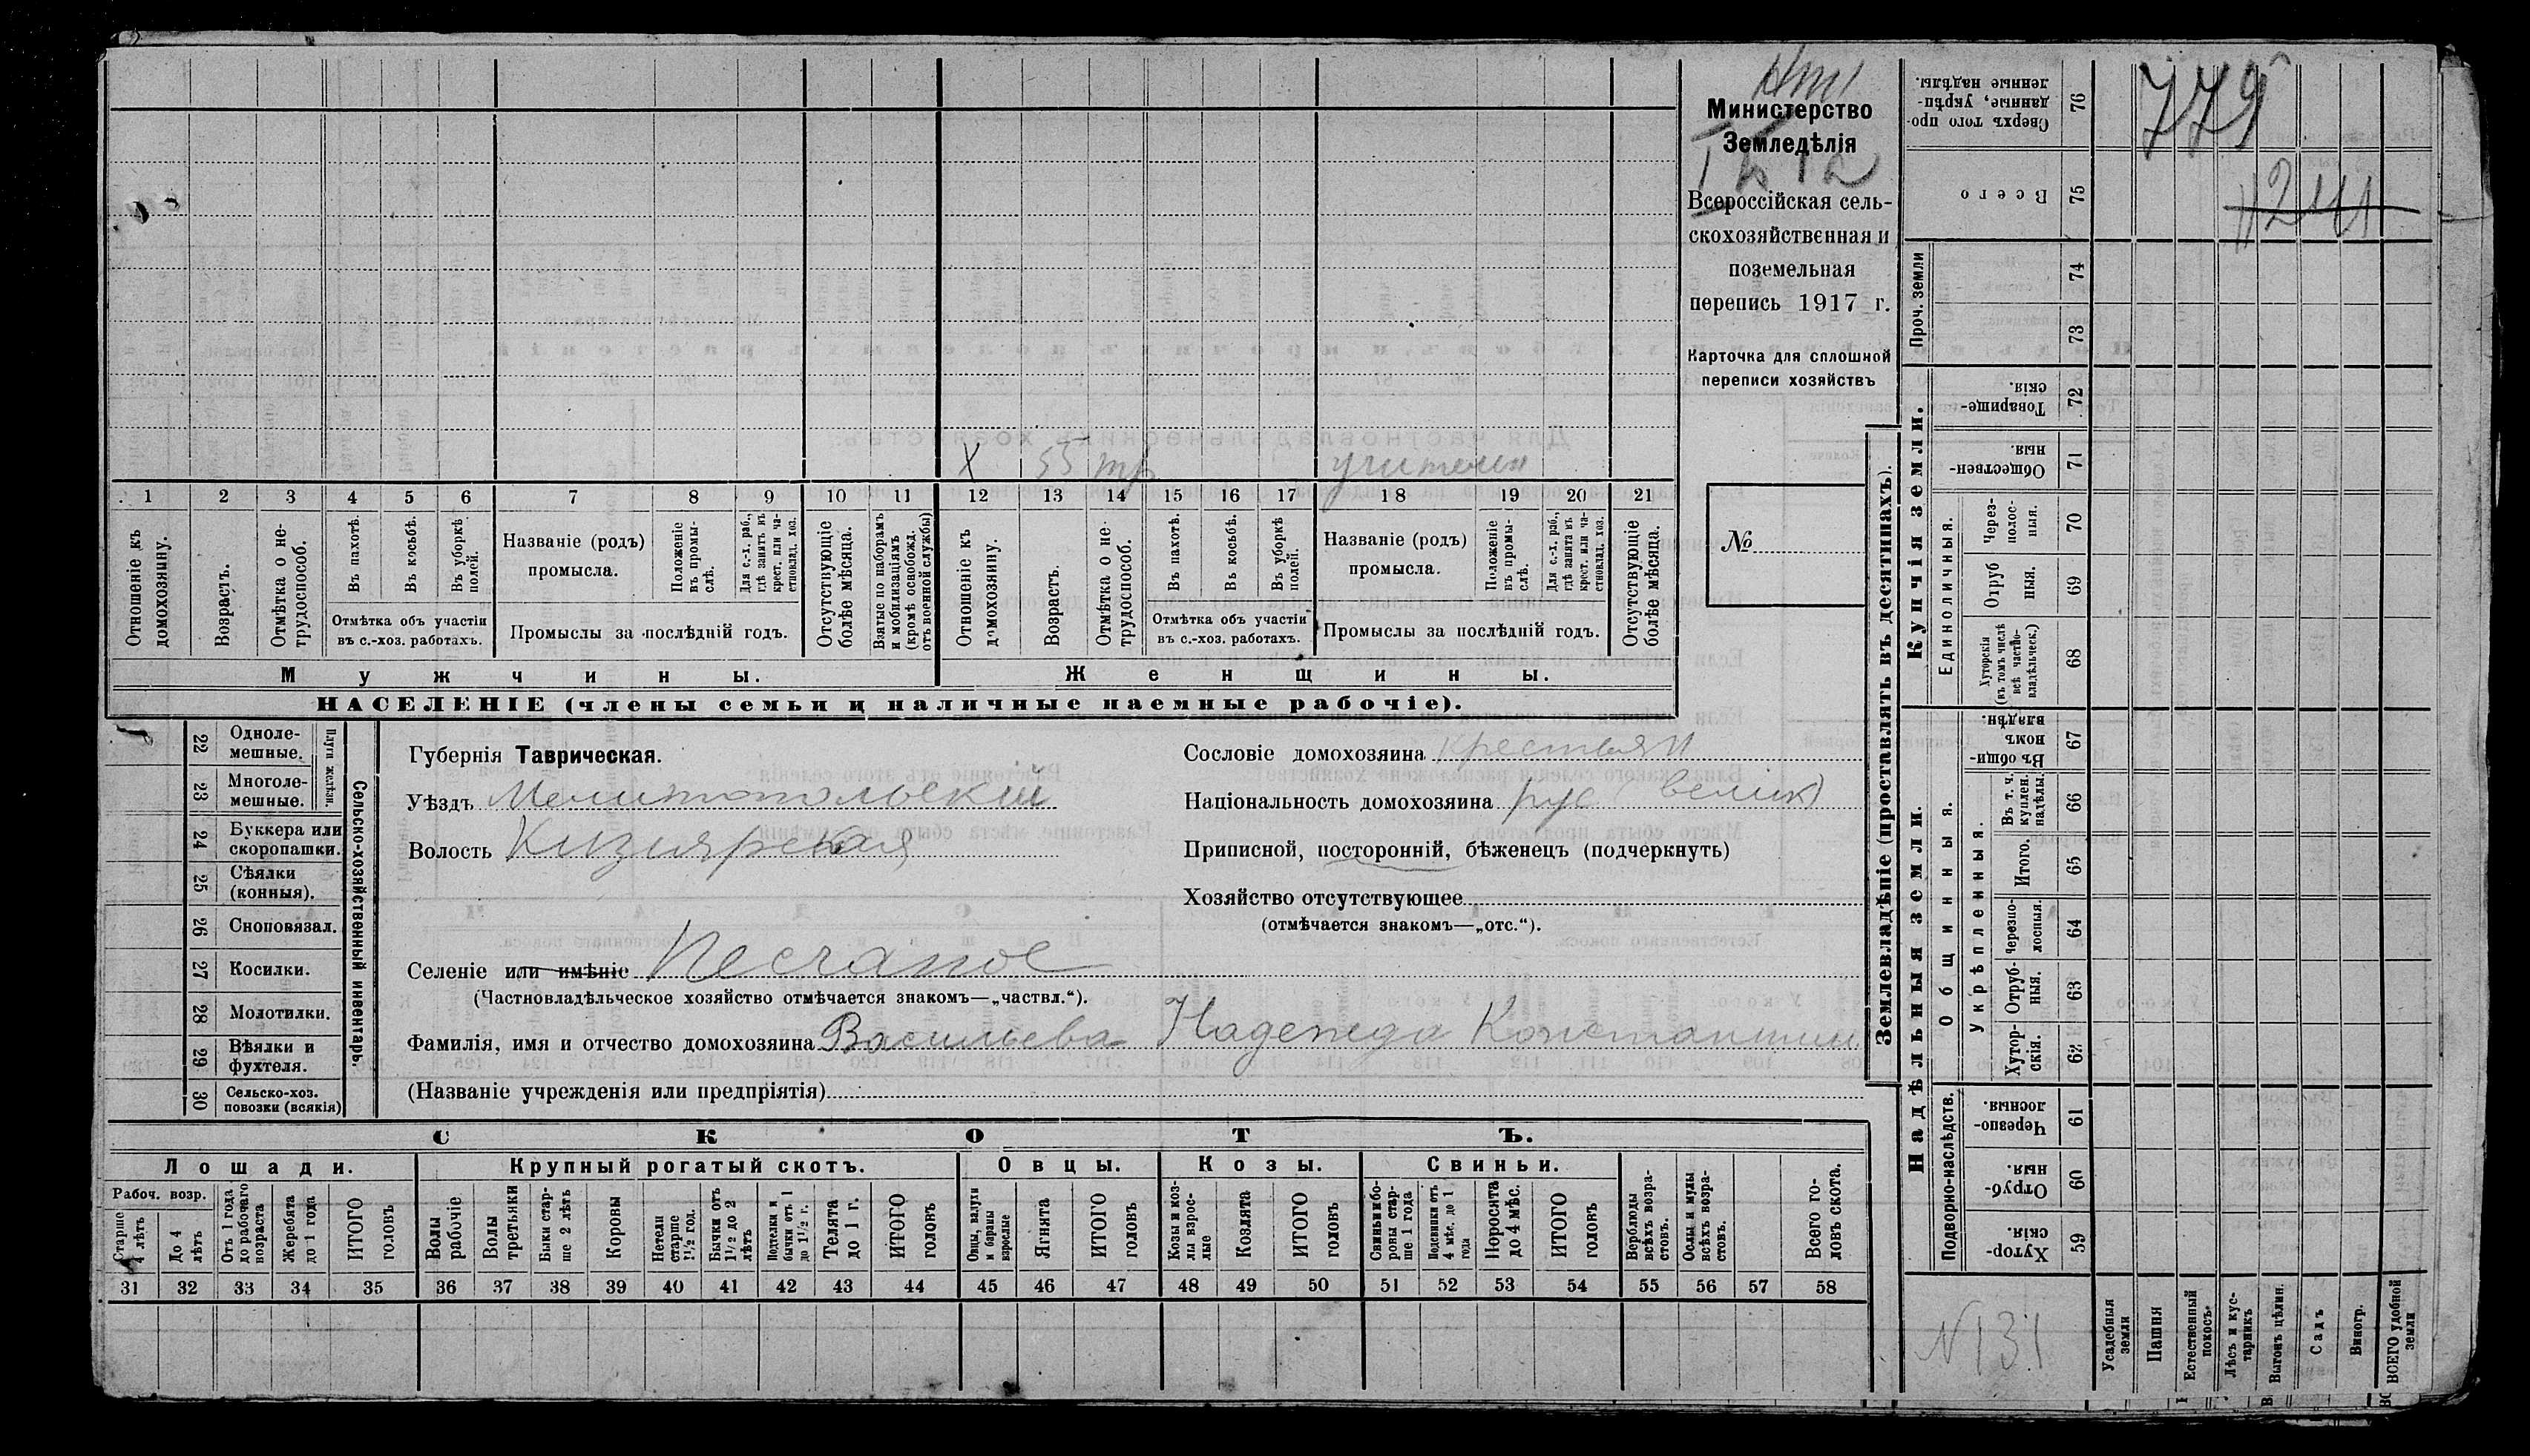 Министерство
Земледѣлія
Всероссійская сель-
скохозяйственная и
поземельная
перепись 1917 г.
Карточка для сплошной
переписи хозяйствъ
№
779
1241
X 55 тр учител
1 2 3 4 5 6 7 8 9 10 11 12 13 14 15 16 17 18 19 20 21
Отношеніе къ домохозяину.
Возрастъ.
Отмѣтка о не-трудоспособ.
Въ пахотѣ.
Въ косьбѣ.
Въ уборкѣ полей.
Отмѣтка объ участіи
въ с.-хоз. работахъ.
Названіе (родъ)
промысла.
Положеніе въ промы-слѣ.
Для с.-х. раб., гдѣ занятъ въ крест. или ча-стновлад. хоз.
Промыслы за послѣдній годъ.
Отсутствующіе болѣе мѣсяца.
Взятые по наборамъ и мобилизаціямъ (кромѣ освобожд. отъ военной службы)
Отношеніе къ домохозяину.
Возрастъ.
Отмѣтка о не-трудоспособ.
Въ пахотѣ.
Въ косьбѣ.
Въ уборкѣ полей.
Отмѣтка объ участіи
въ с.-хоз. работахъ.
Названіе (родъ)
промысла.
Положеніе въ промы-слѣ.
Для с.-х. раб., гдѣ занята въ крест. или ча-стновлад. хоз.
Промыслы за послѣдній годъ.
Отсутствующіе болѣе мѣсяца.
Мужчины. Женщины.
НАСЕЛЕНІЕ (члены семьи и наличные наемные рабочіе).
Сельско-хозяйственный инвентарь.
Плуги желѣзн.
22 Одноле-мешные.
23 Многоле-мешные.
24 Буккера или скоропашки.
25 Сѣялки (конныя).
26 Сноповязал.
27 Косилки.
28 Молотилки.
29 Вѣялки и фухтеля.
30 Сельско-хоз. повозки (всякія)
Губернія Таврическая.
Уѣздъ Мелитопольскій
Волость Кизиярская
Сословіе домохозяина крестьян
Національность домохозяина рус (велик)
Приписной, посторонній, бѣженецъ (подчеркнуть)
Хозяйство отсутствующее
(отмѣчается знакомъ—„отс.“).
Селеніе или имѣніе Песчаное
(Частновладѣльческое хозяйство отмѣчается знакомъ—„частвл.“).
Фамилія, имя и отчество домохозяина Васильева Надежда Константин
(Названіе учрежденія или предпріятія)
СКОТЪ.
Лошади. Крупный рогатый скотъ. Овцы. Козы. Свиньи.
Рабоч. возр.
Старше 4 лѣтъ
До 4 лѣтъ
Отъ 1 года до рабочаго возраста
Жеребята до 1 года
ИТОГО головъ
Волы рабочіе
Волы третьяки
Быки стар-ше 2 лѣтъ
Коровы
Нетели старше 1½ год.
Бычки отъ 1½ до 2 лѣтъ
Подтелки и бычки отъ 1 до 1½ г.
Телята до 1 г.
ИТОГО головъ
Овцы, валухи и бараны взрослые
Ягнята
ИТОГО головъ
Козы и коз-лы взрос-лые
Козлята
ИТОГО головъ
Свиньи и бо-ровы стар-ше 1 года
Подсвинки отъ 4 мѣс. до 1 года
Поросята до 4 мѣс.
ИТОГО головъ
Верблюды всѣхъ возра-стовъ.
Ослы и мулы всѣхъ возра-стовъ.
Всего го-ловъ скота.
31 32 33 34 35 36 37 38 39 40 41 42 43 44 45 46 47 48 49 50 51 52 53 54 55 56 57 58
Землевладѣніе (проставлять въ десятинахъ).
Купчія земли.
Надѣльныя земли.
Сверхъ того про-данные, укрѣп-ленные надѣлы. 76
Всего 75
Проч. земли 74 73
Товарище-скія. 72
Обществен-ныя. 71
Единоличныя.
Через-полос-ныя. 70
Отруб ныя. 69
Хуторскія (въ томъ числѣ всѣ частно-владѣльческ.) 68
Въ общи-номъ владѣн. 67
Общинныя.
Укрѣпленныя.
Въ т. ч. куплен. надѣлы. 66
Итого. 65
Черезпо-лосныя. 64
Отруб-ныя. 63
Хутор-скія. 62
Подворно-наслѣдств.
Черезпо-лосныя. 61
Отруб-ныя. 60
Хутор-скія. 59
N131
Усадебныя земли
Пашня
Естественный покосъ
Лѣсъ и кус-тарникъ
Выгонъ цѣлин.
Садъ
Виногр.
ВСЕГО удобной земли